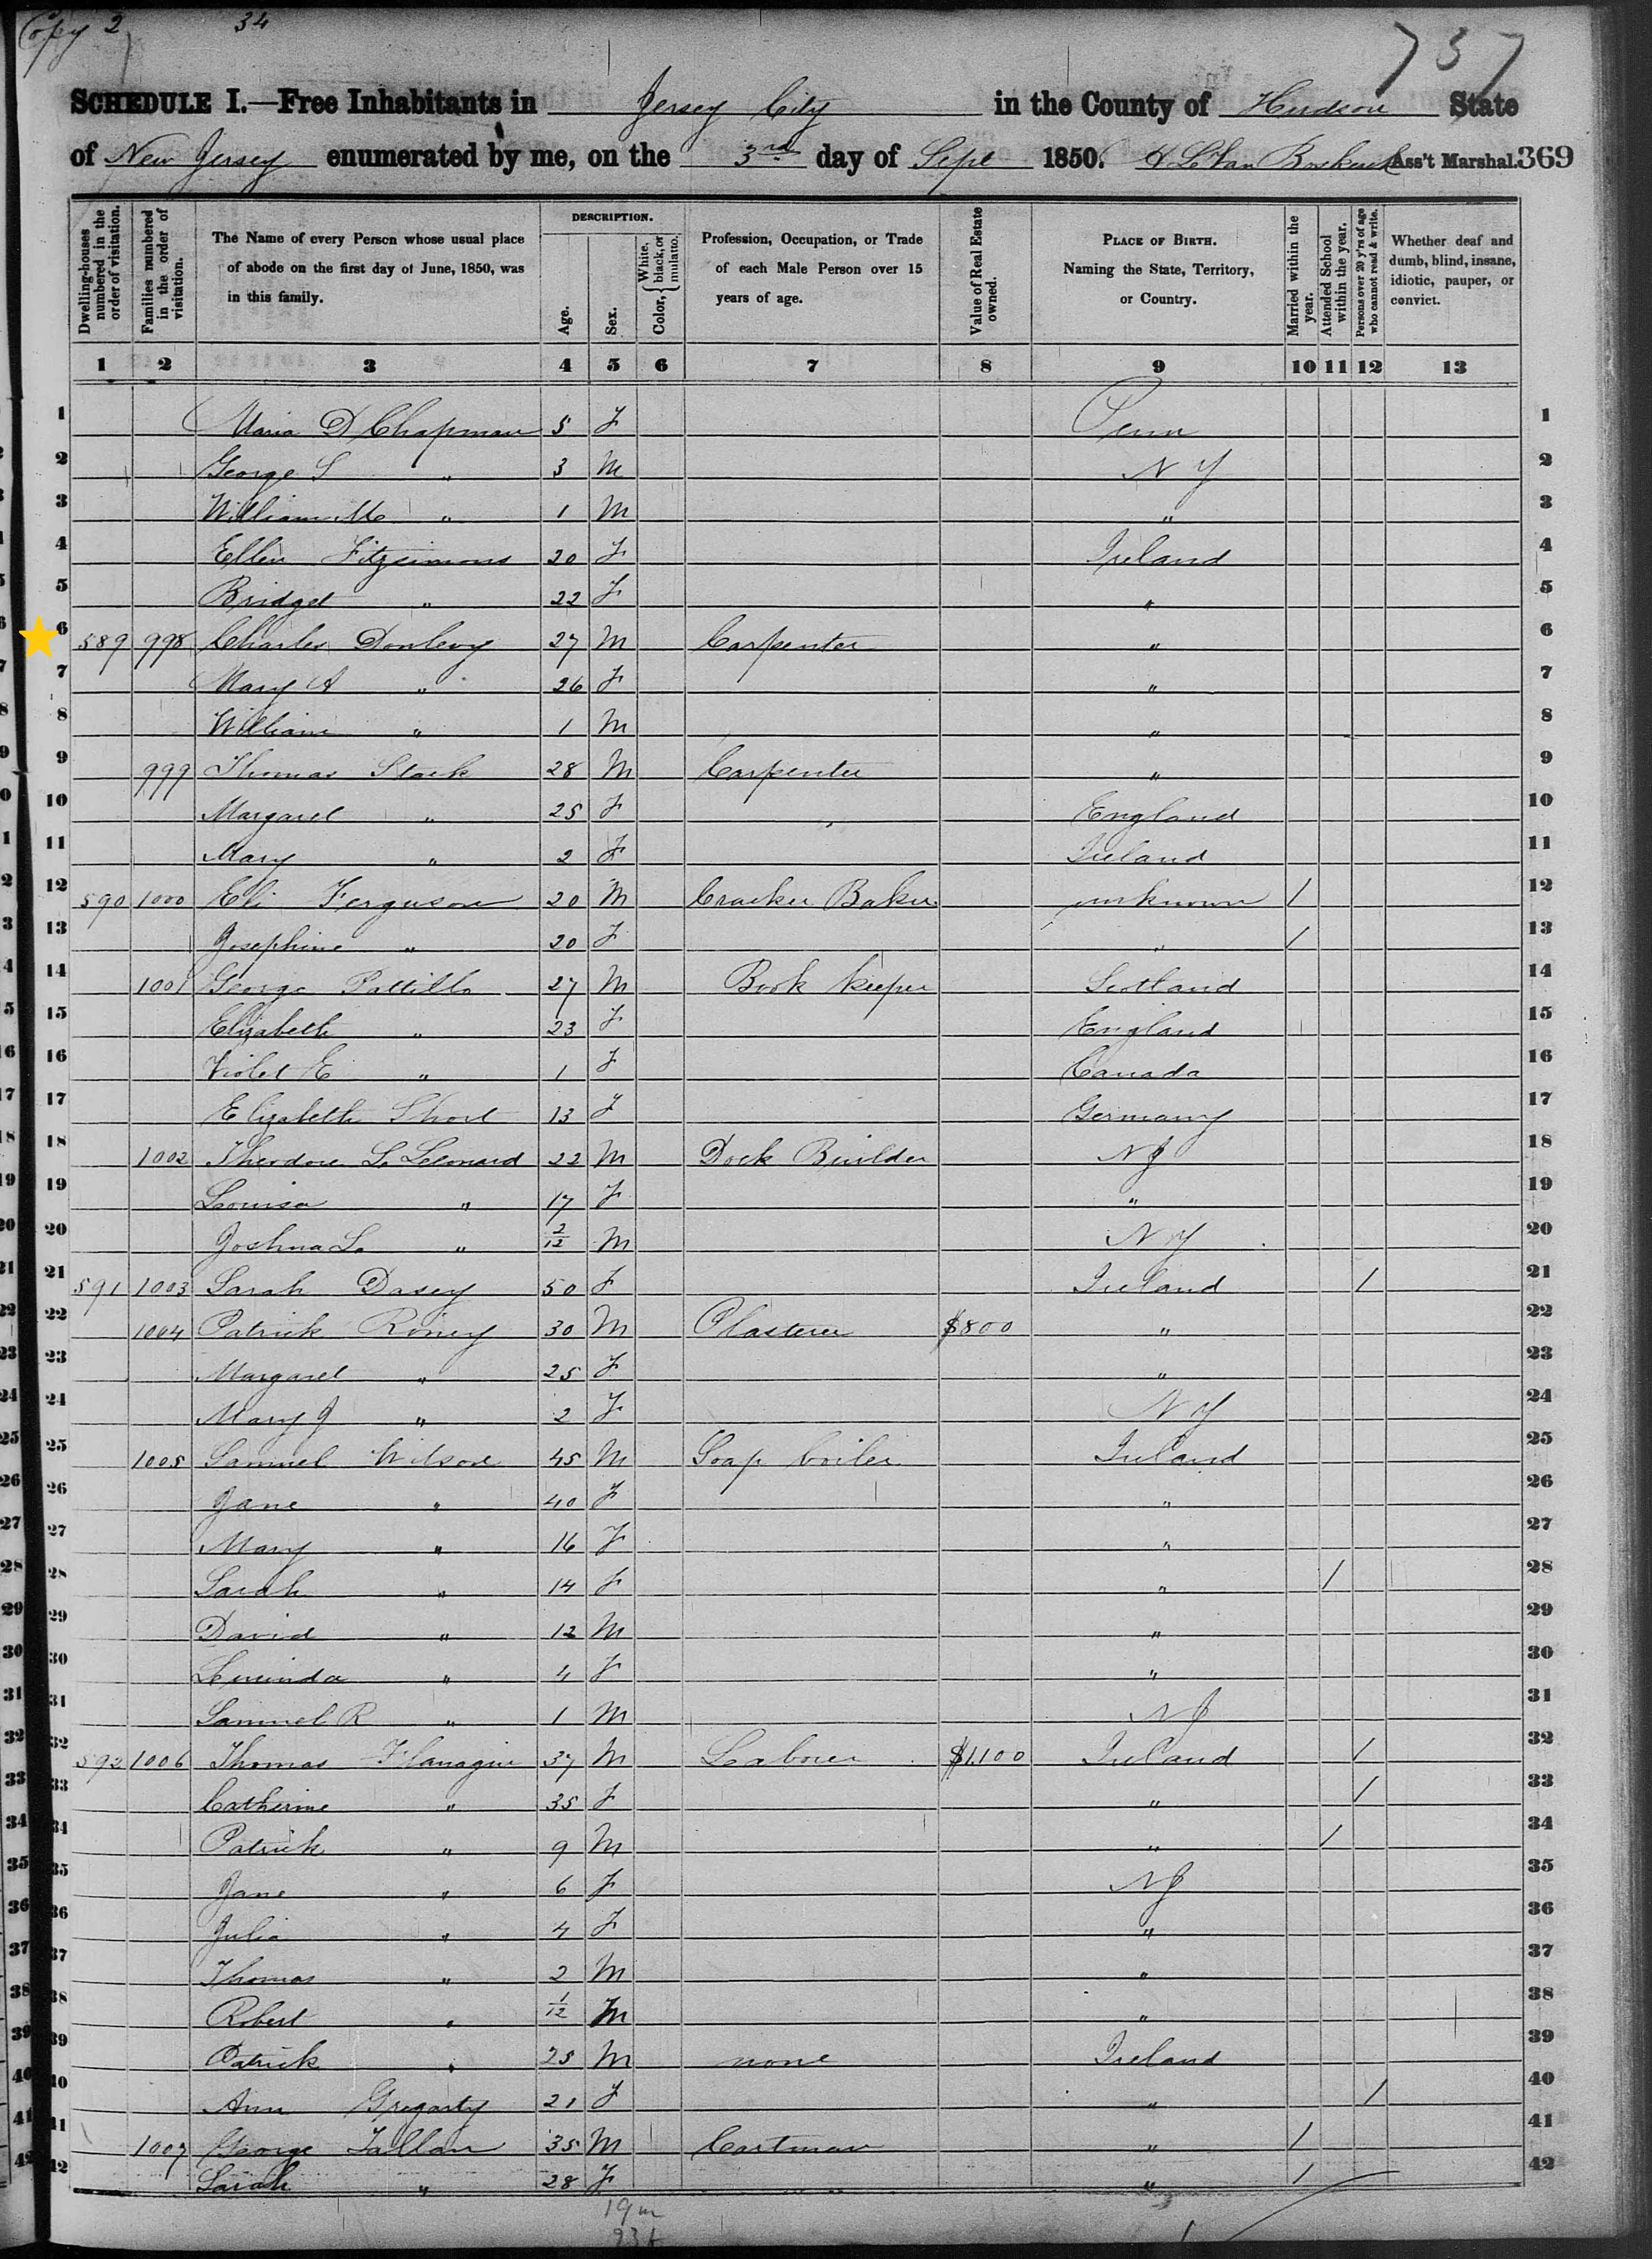 Copy 2 34 737
SCHEDULE I.—Free Inhabitants in Jersey City in the County of Hudson State
of New Jersey enumerated by me, on the 3rd day of Sept 1850. Ass't Marshal. 369
Dwelling-houses numbered in the order of visitation. Families numbered in the order of visitation. The Name of every Person whose usual place of abode on the first day of June, 1850, was in this family. DESCRIPTION. Age. Sex. Color, { White, black, or mulatto. Profession, Occupation, or Trade of each Male Person over 15 years of age. Value of Real Estate owned. PLACE OF BIRTH. Naming the State, Territory, or Country. Married within the year. Attended School within the year. Persons over 20 y'rs of age who cannot read & write. Whether deaf and dumb, blind, insane, idiotic, pauper, or convict.
1 2 3 4 5 6 7 8 9 10 11 12 13
1 Maria D Chapman 5 F Penn 1
2 George S " 3 M N Y 2
3 William M " 1 M " 3
4 Ellen Fitzsimons 20 F Ireland 4
5 Bridget " 22 F " 5
6 589 998 Charles Donlevy 27 M Carpenter " 6
7 Mary A " 26 F " 7
8 William " 1 M " 8
9 999 Thomas Stack 28 M Carpenter " 9
10 Margaret " 25 F England 10
11 Mary " 2 F Ireland 11
12 590 1000 Eli Ferguson 20 M Cracker Baker unknown / 12
13 Josephine " 20 F " / 13
14 1001 George Pattillo 27 M Book keeper Scotland 14
15 Elizabeth " 23 F England 15
16 Violet E " 1 F Canada 16
17 Elizabeth Short 13 F Germany 17
18 1002 Theodore L Leonard 22 M Dock Builder N J 18
19 Louisa " 17 F " 19
20 Joshua L " 2/12 M N Y 20
21 591 1003 Sarah Dasey 50 F Ireland / 21
22 1004 Patrick Roney 30 M Plasterer $800 " 22
23 Margaret " 25 F " 23
24 Mary J " 2 F N Y 24
25 1005 Samuel Wilson 45 M Soap boiler Ireland 25
26 Jane " 40 F " 26
27 Mary " 16 F " 27
28 Sarah " 14 F " / 28
29 David " 12 M " 29
30 Lucinda " 4 F " 30
31 Samuel R " 1 M N J 31
32 592 1006 Thomas Flanagin 37 M Laborer $1,100 Ireland / 32
33 Catherine " 35 F " / 33
34 Patrick " 9 M " / 34
35 Jane " 6 F N J 35
36 Julia " 4 F " 36
37 Thomas " 2 M " 37
38 Robert " 1/12 M " 38
39 Patrick " 25 M none Ireland 39
40 Ann Gregarty 21 F " / 40
41 1007 George Fallan 35 M Cartman " / 41
42 Sarah " 28 F " / 42
19 m
23 f